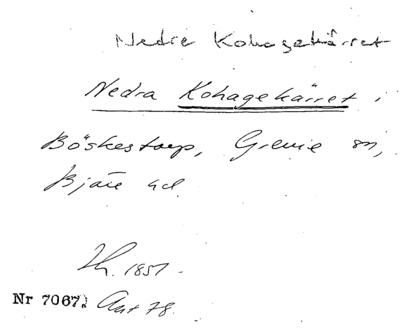 Nedre Kohagekärret
Nedra Kohagekärret i
Böskestorp, Grevie sn,
Bjäre hd.
Lh. 1851.
Nr 7067. Akt 78.